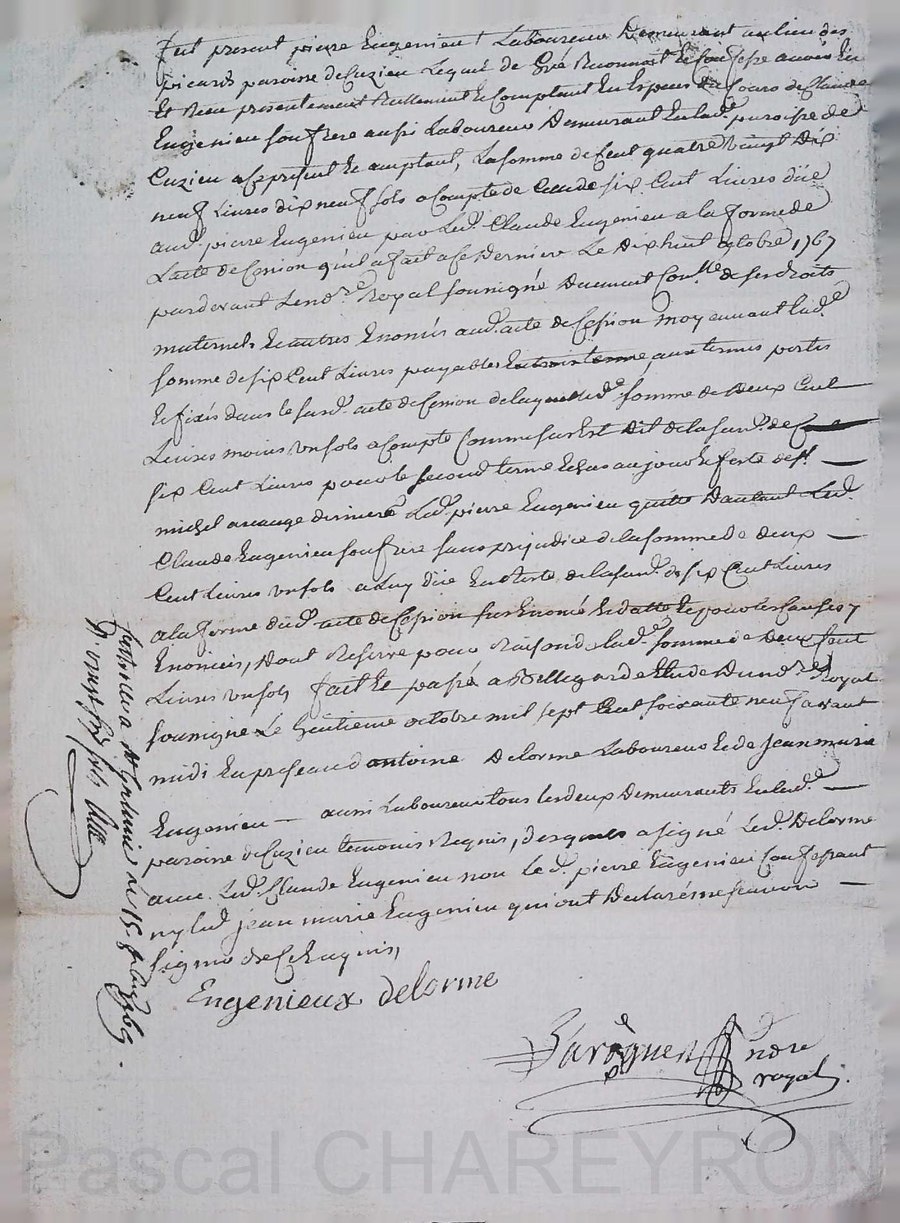 fut present pierre Eugenieu Laboureur Demeurant au lieu des
picards paroisse de Cuzieu Lequel de Gré Reconnoit et Confesse avoir Eu
Et Receu presentement Reellement et Comptant En Especes du Cours de Claude
Eugenieu son frere aussi Laboureur Demeurant En lad.e paroisse de
Cuzieu a Ce present et acceptant, La somme de Cent quatre vingt Dix
neuf Livres dix neuf sols a Compte de Celle de six Cent Livres düe
aud. pierre Eugenieu par Led. Claude Eugenieu a la forme de
Lacte de Cession qu'il a fait a Ce Dernier Le Dix huit octobre 1767
pardevant Le no.re Royal soussigné Duement Con.llé de ses droits
maternels Et autres Enoncés aud. acte de Cession moyennant lad.e
somme de six Cent Livres payables aux termes portés
Et fixés dans le susd. acte de Cession de laquelle d.e somme de Deux Cent
Livres moins un sols a Compte Comme sus Est Dit de la susd. de
six Cent Livres pour le second terme Echus au jour et feste de st.
michel archange dernier Led. pierre Eugenieu quitte D'autant Led.
Claude Eugenieu son frere sans prejudice de la somme de deux
Cent Livres un sols a Luy düe En Reste de la susd. de six Cent Livres
a la forme dud. acte de Cession sus Enoncé Et datté Et pour les Causes y
Enoncées, Dont Reserve pour Raison de lad.e somme de Deux Cent
Livres un sols fait Et passé a Bellegarde Etude Du no.re Royal
soussigné Le huitieme octobre mil sept Cent soixante neuf avant
midi En presence d'antoine Delorme Laboureur Et de Jean marie
Eugenieu aussi Laboureur tous les deux Demeurants En lad.e
paroisse de Cuzieu temoins Requis, desquels a signé Led. Delorme
avec Led. Claude Eugenieu non le d. pierre Eugenieu Confessant
ny led. jean marie Eugenieu qui ont Declaré ne scavoir
signer de Ce Enquis,
Eugenieux delorme
no.re
royal
Controllé a St Galmier le 15 8bre 1769